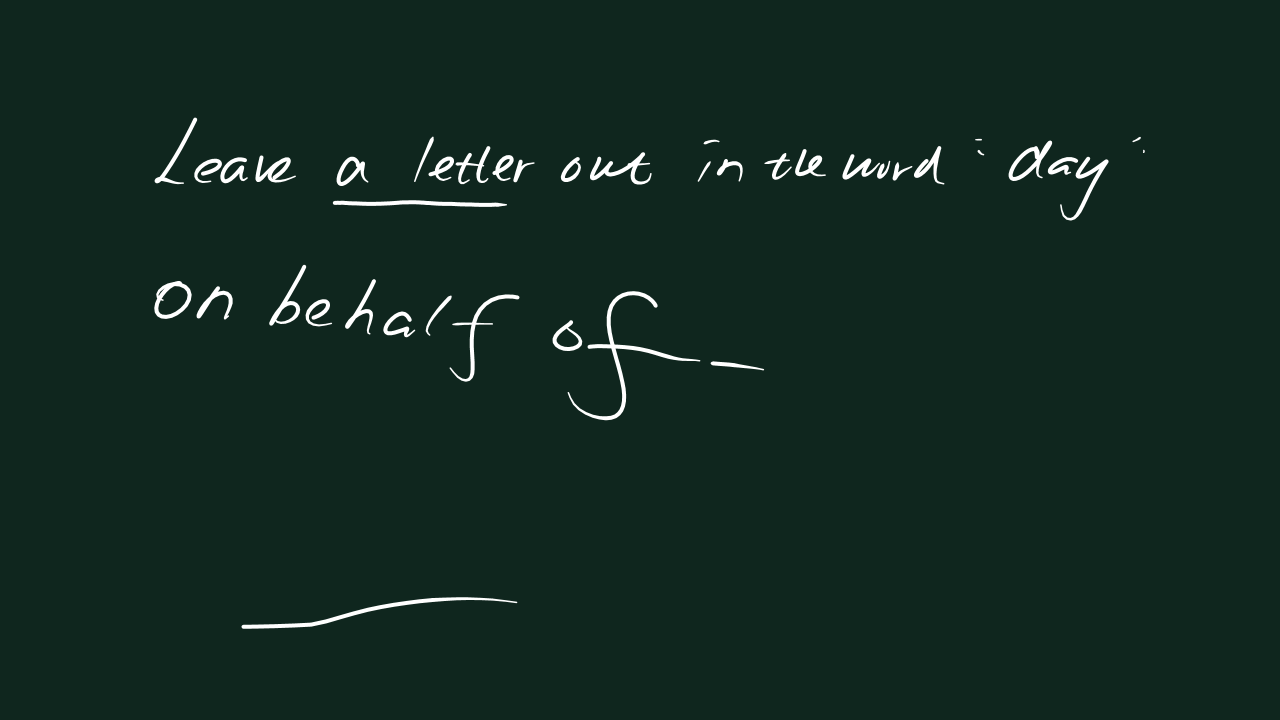 Leave a letter out in the word "day"
on behalf of